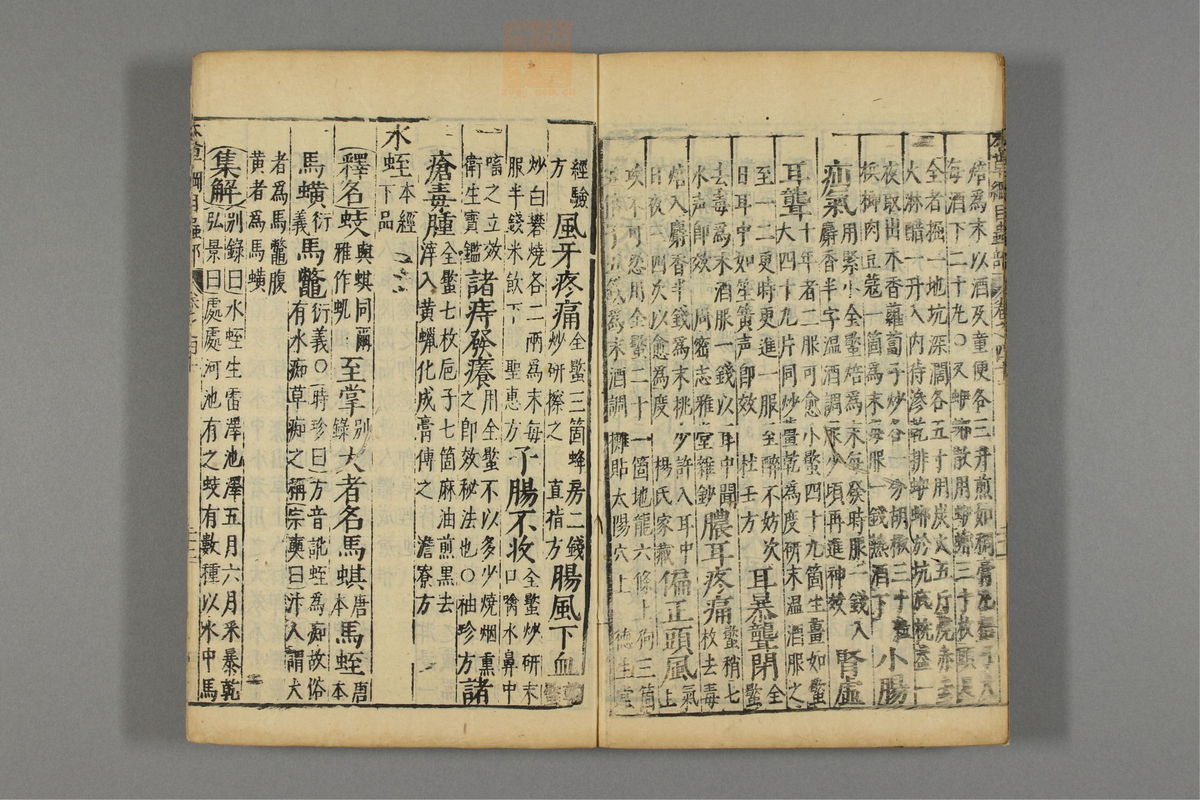 焙為末以酒及童便各三升煎如稠膏丸梧子大
每酒下二十丸○又蛜𧍪散用蛜𧍪三十枚頭尾
全者掘一地坑深濶各五寸用炭火五斤燒赤去
火淋醋一升入內待滲乾排蛜𧍪於坑底椀蓋一
夜取出木香蘿蔔子炒各一分胡椒三十粒
梹榔肉豆蔻一箇為末每服一錢熱酒下 小腸
疝氣用緊小全蠍焙為末每發時服一錢入
麝香半字温酒調服少頃再進神效 腎虛
耳聾十年者二服可愈小蠍四十九箇生薑如蠍
大四十九片同炒薑乾為度研末温酒服之
至一二更時更進一服至醉不妨次
日耳中如笙簧声即效 杜壬方 耳暴聾閉全蠍
去毒為末酒服一錢以耳中聞
水声即效 周密志雅堂雜鈔 膿耳疼痛蠍稍七枚去毒
焙入麝香半錢為末挑少許入耳中
日夜三四次以愈為度 楊氏家藏 偏正頭風氣上
攻不可忍用全蠍二十一箇地龍六條土狗三箇
五倍子五錢為末酒調攤貼太陽穴上 德生堂
經驗方 風牙疼痛全蠍三箇蜂房二錢炒研擦之 直指方 腸風下血乾蠍
炒白礬燒各二兩為末每服半錢米飲下 聖惠方 子腸不收全蠍炒研末口噙水鼻中
㗜之立效 衛生寶鑑 諸痔發癢用全蠍不以多少燒烟熏之即效秘法也○袖珍方 諸
瘡毒腫全蠍七枚巵子七箇麻油煎黑去滓入黃蠟化成膏傅之 澹寮方
水蛭本經下品
釋名蚑與蜞同爾雅作蟣 至掌別錄 大者名馬蜞唐本 馬蛭唐本
馬蟥衍義 馬鱉衍義○時珍曰方音訛蛭為痴故俗有水痴草痴之稱宗奭曰汴人謂大
者為馬鱉腹黃者為馬蟥
集解別錄曰水蛭生雷澤池澤五月六月采暴乾
弘景曰處處河池有之蚑有數種以水中馬